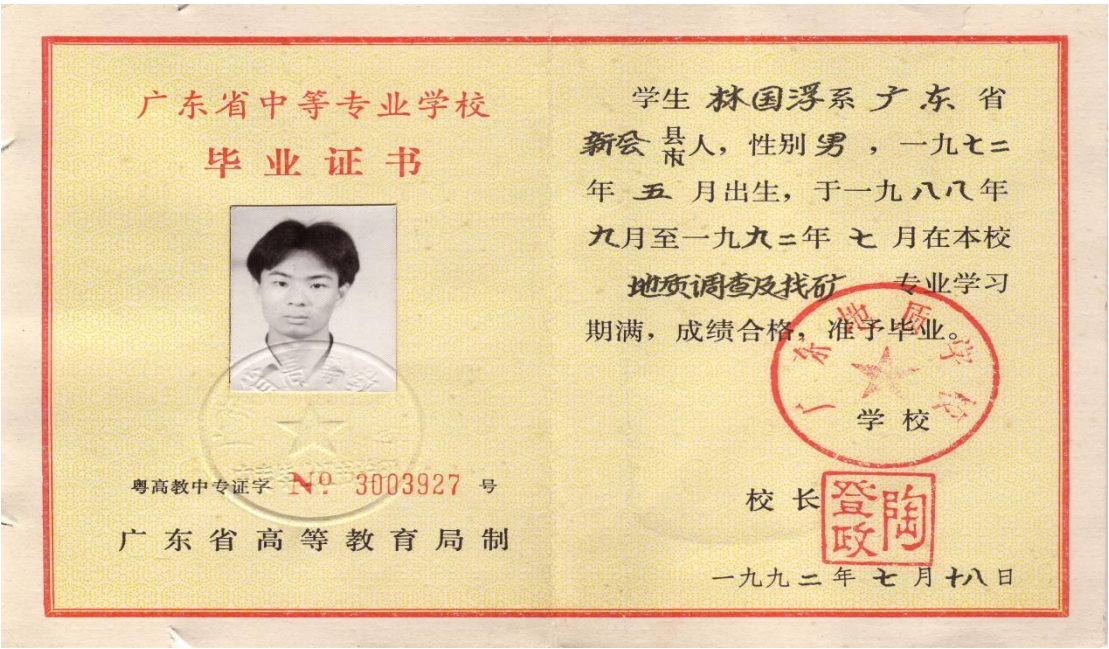 广东省中等专业学校
毕业证书
粤高教中专证字 Nº 3003927 号
广东省高等教育局制
学生 林国浮系 广东 省
新会 县市人，性别 男 ，一九七二
年 五 月出生，于一九八八年
九月至一九九二年 七 月在本校
地质调查及找矿 专业学习
期满，成绩合格，准予毕业。
广东地质学校
学校
校长 陶登政
一九九二年七月十八日